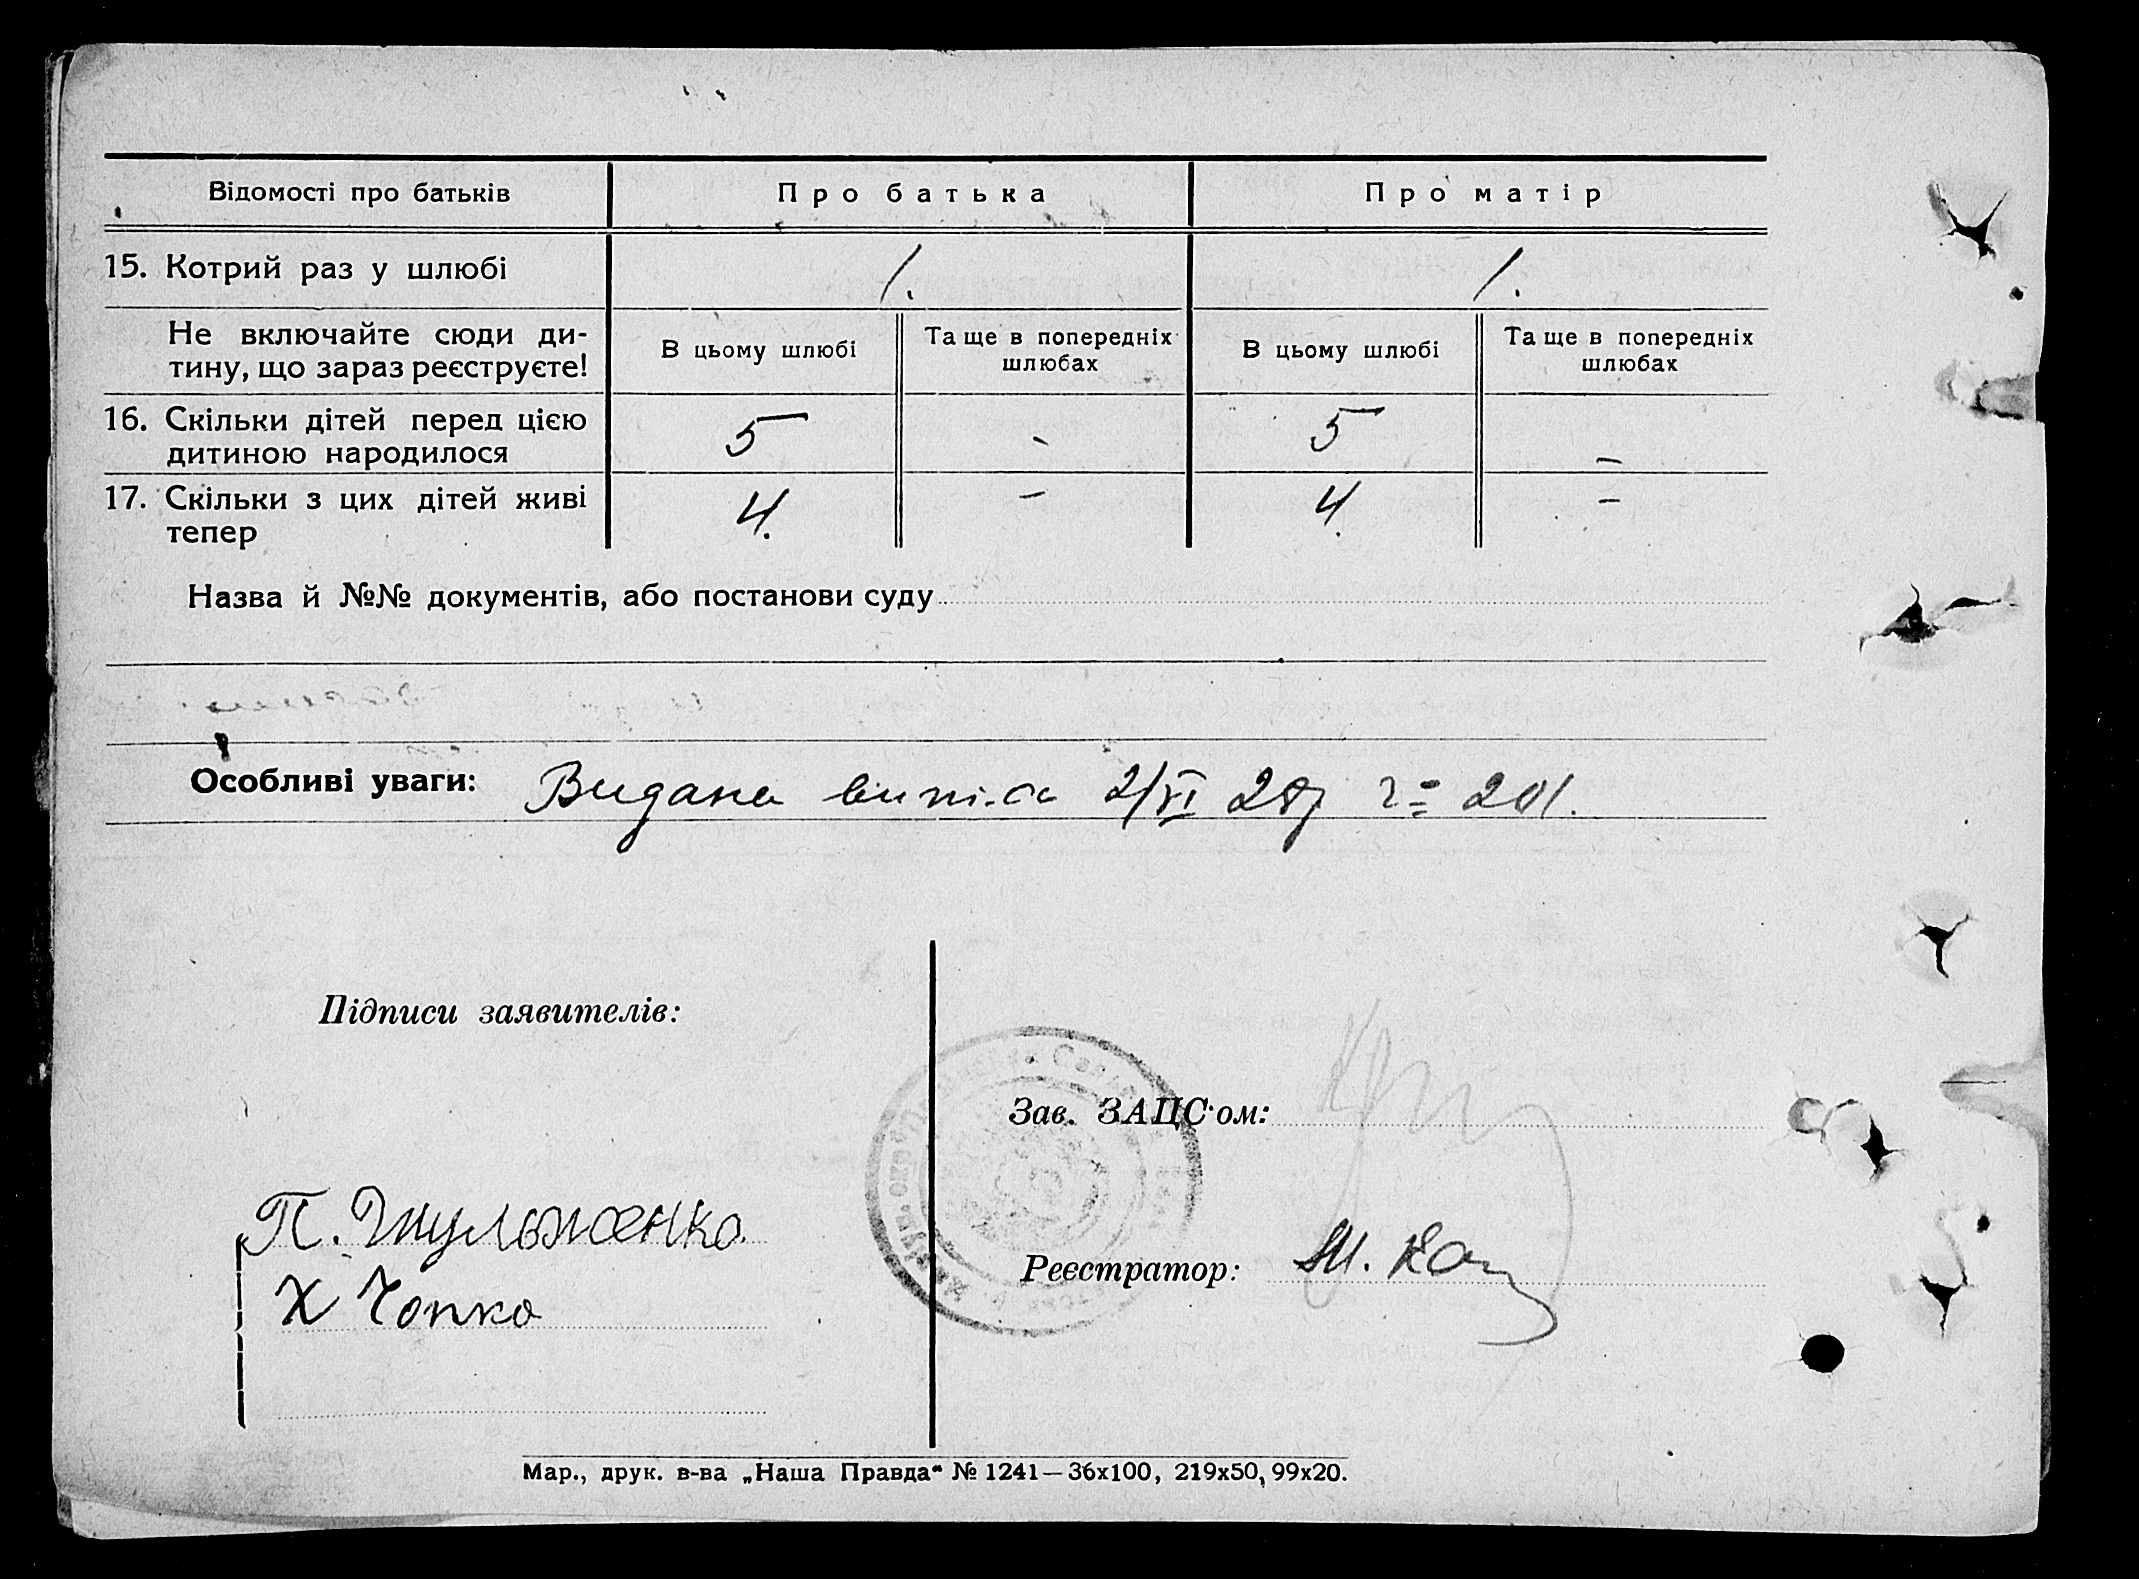 Відомості про батьків
Про батька
Про матір
15. Котрий раз у шлюбі
1.
1.
Не включайте сюди ди-
тину, що зараз реєструєте!
В цьому шлюбі
Та ще в попередніх
шлюбах
В цьому шлюбі
Та ще в попередніх
шлюбах
16. Скільки дітей перед цією
дитиною народилося
5
-
5
-
17. Скільки з цих дітей живі
тепер
4.
-
4.
-
Назва й №№ документів, або постанови суду
Особливі уваги: Видана випись 2/VI 28р 201.
Підписи заявителів:
Зав. ЗАЦС·ом:
П. Джульженко
Х Чопко
Реєстратор:
Мар., друк. в-ва „Наша Правда“ № 1241—36х100, 219х50, 99х20.